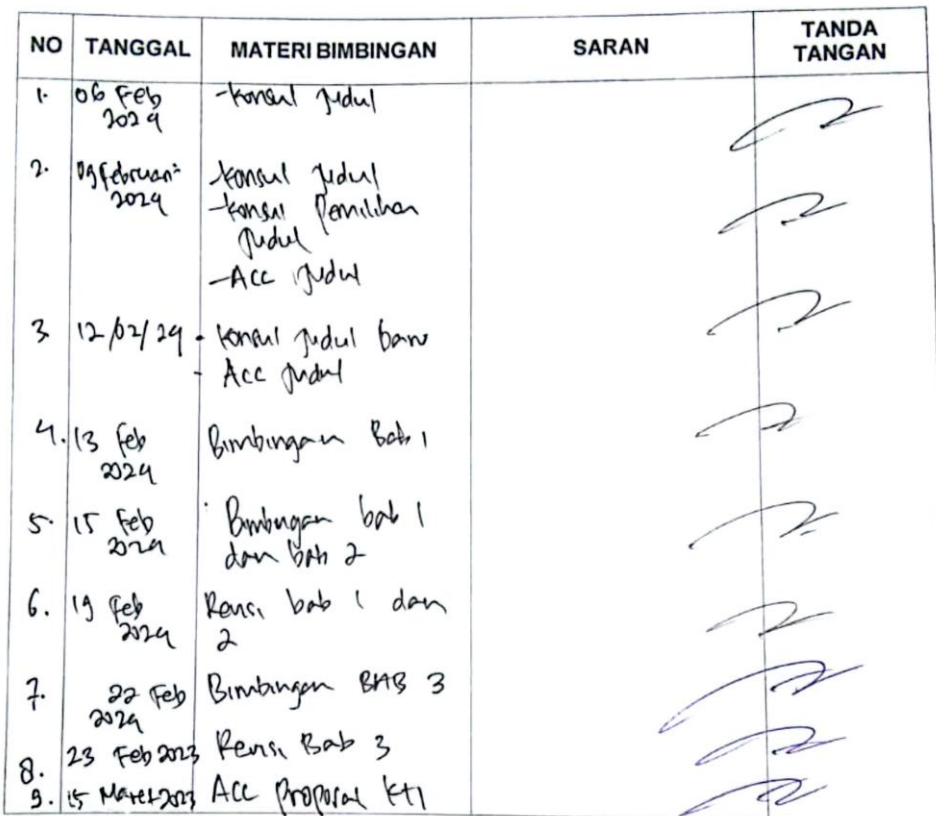 NO TANGGAL MATERI BIMBINGAN SARAN TANDA TANGAN
1. 06 Feb 2024 -Konsul Judul
2. 09 Februari 2024 -Konsul Judul
-Konsul Pemilihan Judul
-Acc Judul
3. 12/02/24 - Konsul Judul baru
- Acc Judul
4. 13 Feb 2024 Bimbingan Bab 1
5. 15 Feb 2024 Bimbingan bab 1
dan bab 2
6. 19 Feb 2024 Revisi bab 1 dan
2
7. 22 Feb 2024 Bimbingan BAB 3
8. 23 Feb 2023 Revisi Bab 3
9. 15 Maret 2023 Acc Proposal KTI